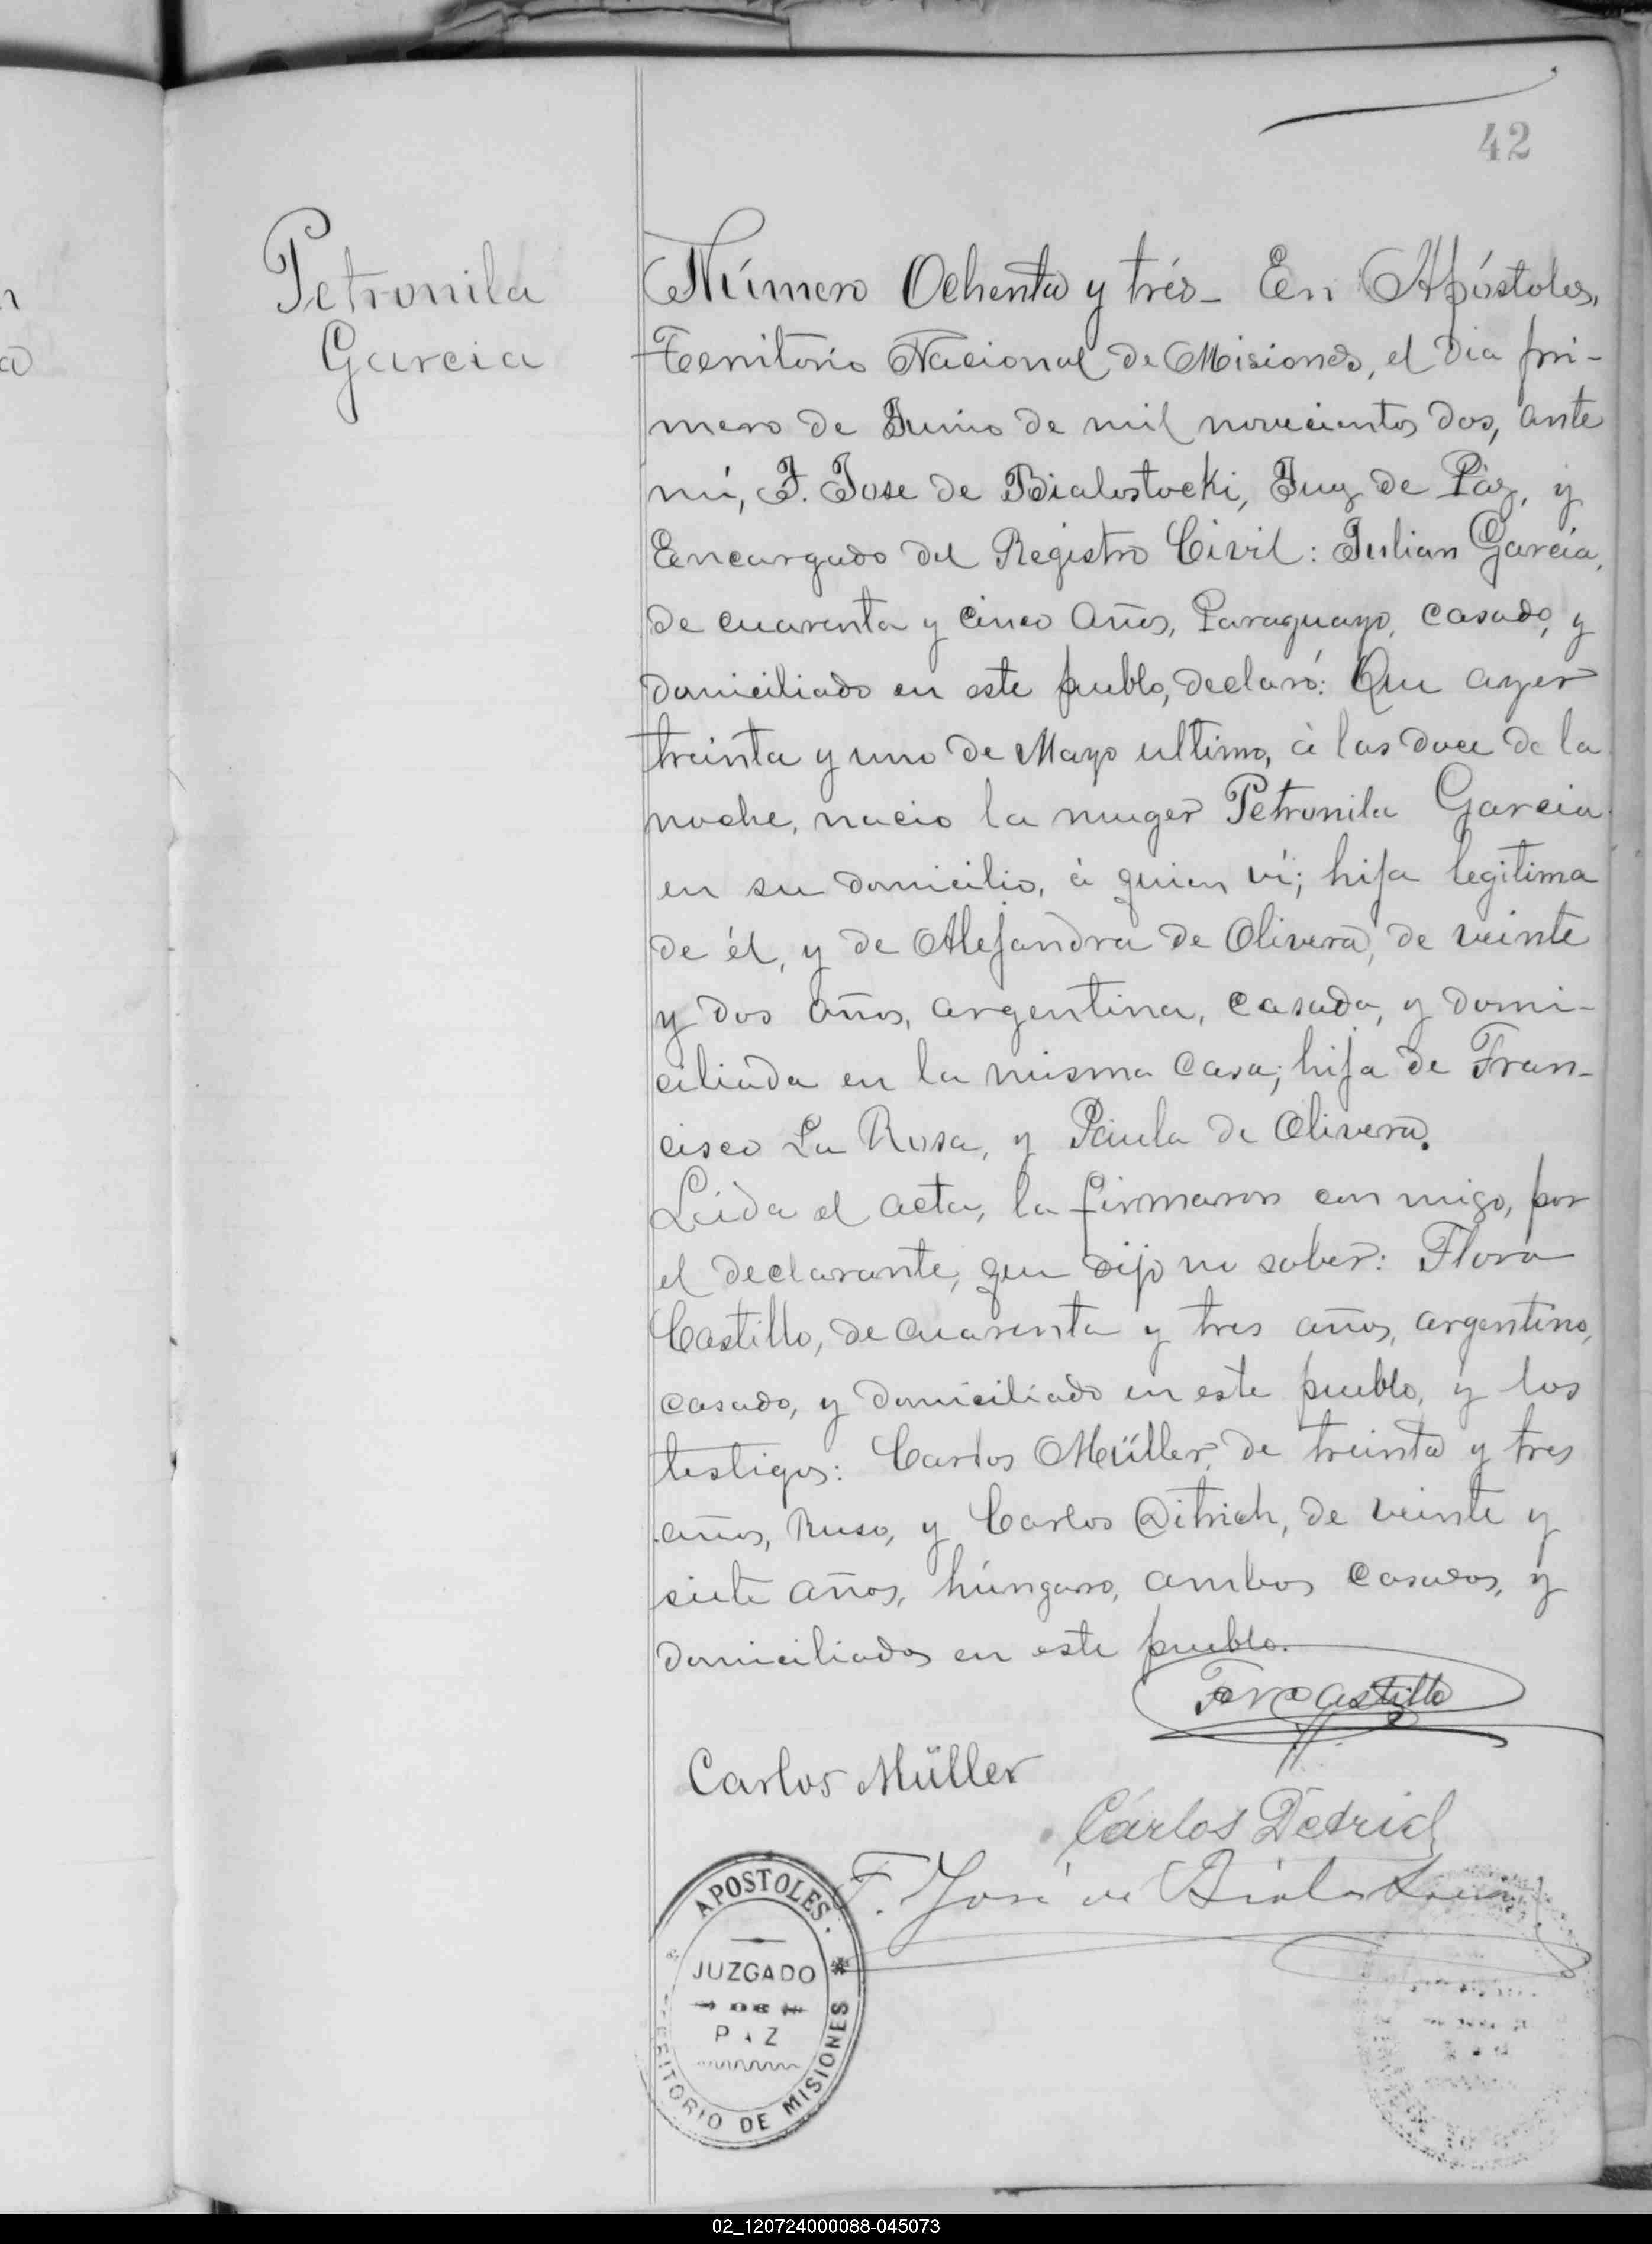 42
Petronila
Garcia
Número Ochenta y trés_ En Apóstoles,
Territorio Nacional de Misiones, el dia pri-
mero de Junio de mil novecientos dos, ante
mi, F. Jose de Bialostocki, Juez de Páz, y
Encargado del Registro Civil: Julian Garcia,
de cuarenta y cinco años, Paraguayo, casado, y
domiciliado en este pueblo, declaró: Que ayer
treinta y uno de Mayo ultimo, á las doce de la
noche, nacio la muger Petronila Garcia
en su domicilio, á quien ví; hija legitima
de él, y de Alejandra de Olivera, de veinte
y dos años, argentina, casada, y domi-
ciliada en la misma casa; hija de Fran-
cisco La Rosa, y Paula de Olivera.
Leida el acta, la firmaron con migo, por
el declarante, que dijo no saber: Flora
Castillo, de cuarenta y tres años, argentino,
casado, y domiciliado en este pueblo, y los
testigos: Carlos Müller, de treinta y tres
años, Ruso, y Carlos Ditrich, de veinte y
siete años, húngaro, ambos casados, y
domiciliados en este pueblo.
Castillo
Carlos Müller
Cárlos Detrich
F. José de Bialostocki
APOSTOLES.
JUZGADO
DE
PAZ
TERRITORIO DE MISIONES
02_120724000088-045073